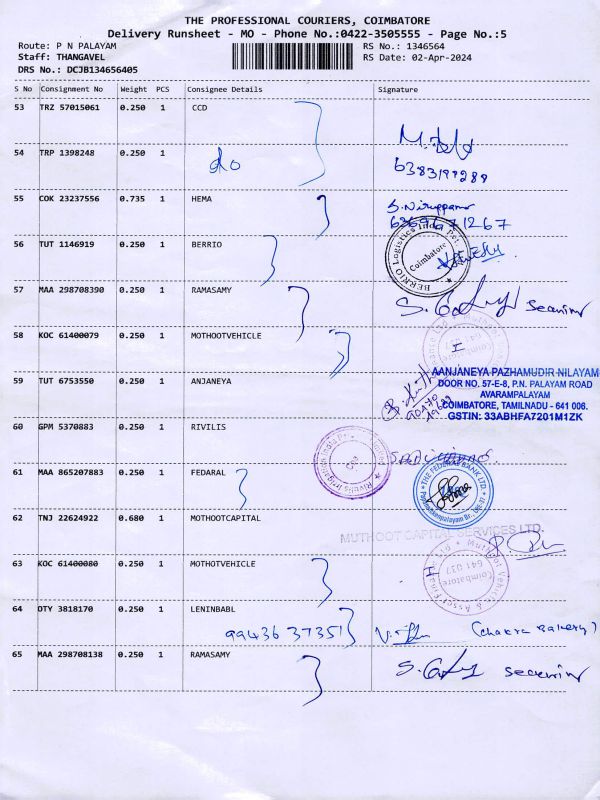 THE PROFESSIONAL COURIERS, COIMBATORE
Delivery Runsheet - MO - Phone No.:0422-3505555 - Page No.:5
Route: P N PALAYAM
RS No.: 1346564
Staff: THANGAVEL
RS Date: 02-Apr-2024
DRS No.: DCJB134656405
S No Consignment No Weight PCS Consignee Details Signature
53 TRZ 57015061 0.250 1 CCD
54 TRP 1398248 0.250 1 do
6383199289
55 COK 23237556 0.735 1 HEMA
S. Niruppama
6369671267
56 TUT 1146919 0.250 1 BERRIO
BERRIO Logistics India Pvt.
Coimbatore
57 MAA 298708390 0.250 1 RAMASAMY
58 KOC 61400079 0.250 1 MOTHOOTVEHICLE
59 TUT 6753550 0.250 1 ANJANEYA
AANJANEYA PAZHAMUDIR NILAYAM
DOOR NO. 57-E-8, P.N. PALAYAM ROAD
AVARAMPALAYAM
COIMBATORE, TAMILNADU - 641 006.
GSTIN: 33ABHFA7201M1ZK
60 GPM 5370883 0.250 1 RIVILIS
Rivulis Irrigation India
61 MAA 865207883 0.250 1 FEDARAL
THE FEDERAL BANK LTD.
62 TNJ 22624922 0.680 1 MOTHOOTCAPITAL
MUTHOOT CAPITAL SERVICES LTD.
63 KOC 61400080 0.250 1 MOTHOTVEHICLE
Muthoot Vehicle & Asset Finance
Coimbatore
641 037
64 OTY 3818170 0.250 1 LENINBABL
9943637351
(chakra Bakery)
65 MAA 298708138 0.250 1 RAMASAMY